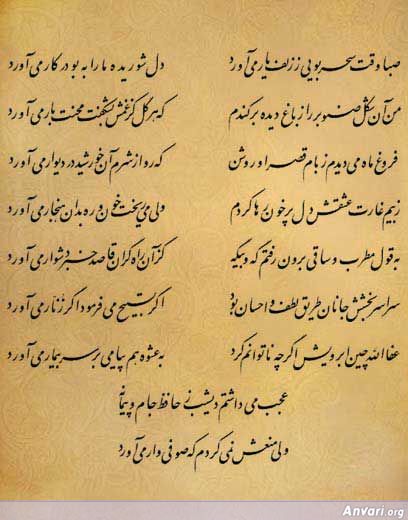 صبا وقت سحر بویی ز زلف یار می‌آورد دل شوریده ما را به بو در کار می‌آورد
من آن شکل صنوبر را ز باغ دیده برکندم که هر گل کز غمش بشکفت محنت بار می‌آورد
فروغ ماه می‌دیدم ز بام قصر او روشن که رو از شرم آن خورشید در دیوار می‌آورد
ز بیم غارت عشقش دل پرخون رها کردم ولی می‌ریخت خون و ره بدان هنجار می‌آورد
به قول مطرب و ساقی برون رفتم گه و بیگه کز آن راه گران قاصد خبر دشوار می‌آورد
سراسر بخشش جانان طریق لطف و احسان بود اگر تسبیح می‌فرمود اگر زنار می‌آورد
عفاالله چین ابرویش اگر چه ناتوانم کرد به عشوه هم پیامی بر سر بیمار می‌آورد
عجب می‌داشتم دیشب ز حافظ جام و پیمانه
ولی منعش نمی‌کردم که صوفی وار می‌آورد
Anvari.org